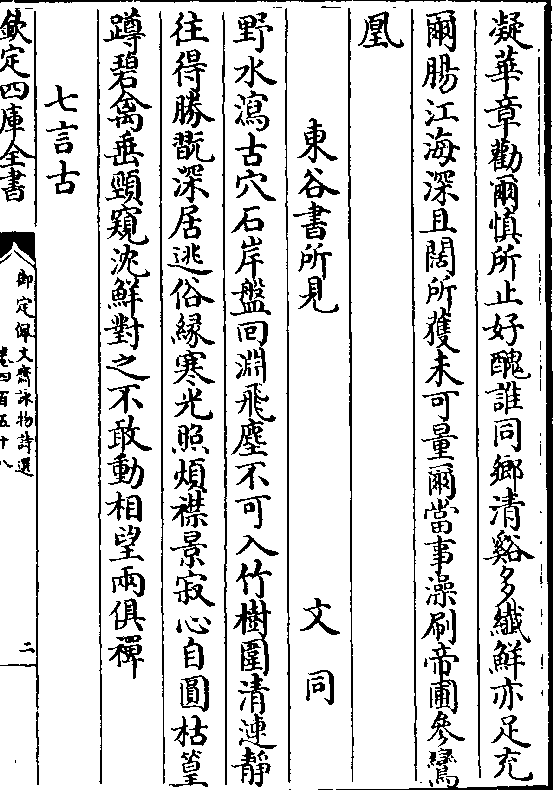 凝華章勸爾慎所止好醜誰同鄉清谿多纖鮮亦足充
爾腸江海深且闊所獲未可量爾當事澡刷帝圃參鸞
凰
東谷書所見 文同
野水瀉古穴石岸盤回淵飛塵不可入竹樹圍清漣靜
往得勝翫深居逃俗緣寒光照煩襟景寂心自圓枯篁
蹲碧禽垂頸窺沈鮮對之不敢動相望兩俱禪
七言古
欽定四庫全書
御定佩文齋詠物詩選
卷四百五十八
二